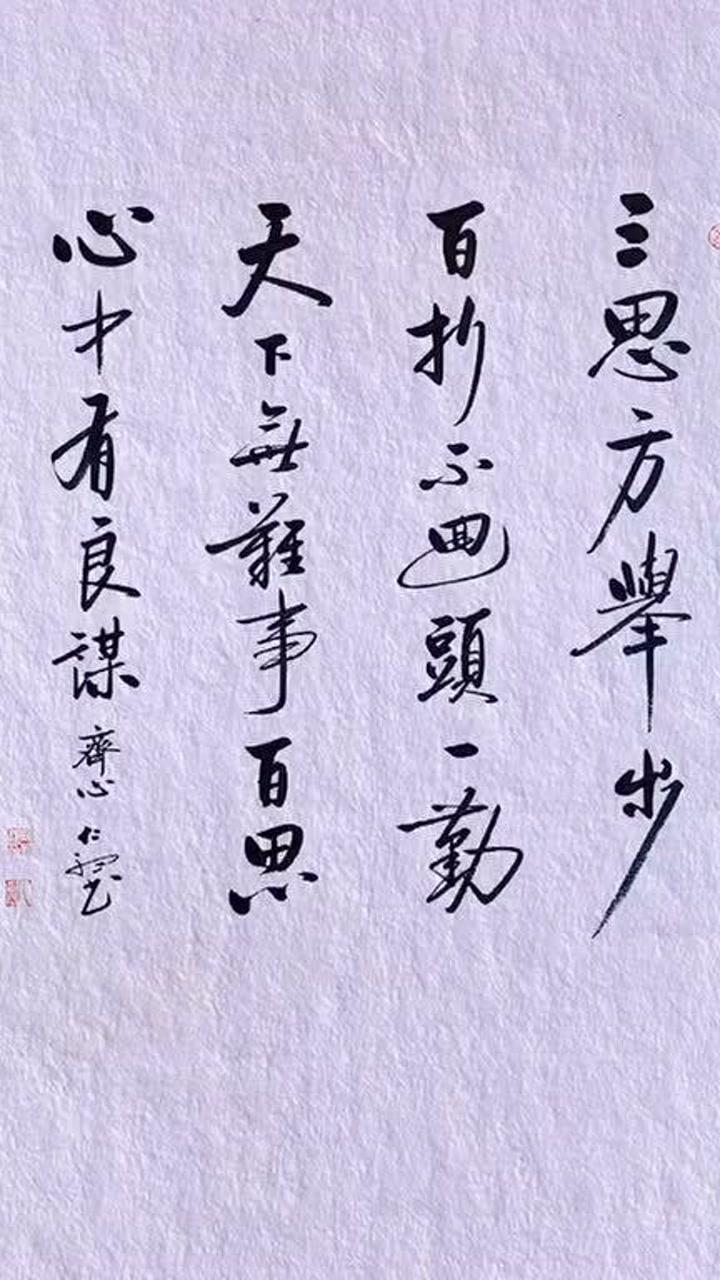 三思方舉步
百抄不回頭一勤
天下無難事百思
心中有良謀 齊心 仁